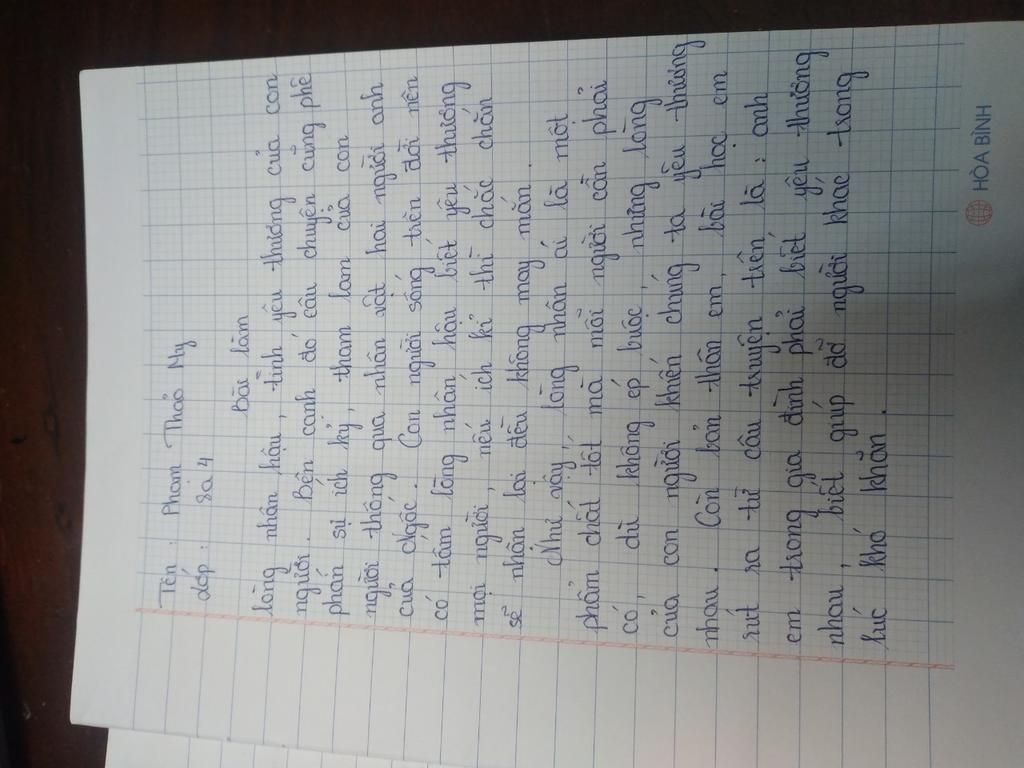 Tên : Phạm Thảo My
Lớp : 8A4
Bài làm
lòng nhân hậu, tình yêu thương của con
người. Bên cạnh đó câu chuyện cũng phê
phán sự ích kỷ, tham lam của con
người thông qua nhân vật hai người anh
của Ngốc. Con người sống trên đời nên
có tấm lòng nhân hậu biết yêu thương
mọi người, nếu ích kỉ thì chắc chắn
sẽ nhân lại điều không may mắn.
Như vậy, lòng nhân ái là một
phẩm chất tốt mà mỗi người cần phải
có, dù không ép buộc, những lòng
của con người khiến chúng ta yêu thương
nhau. Còn bản thân em, bài học em
rút ra từ câu truyện trên là : anh
em trong gia đình phải biết yêu thương
nhau, biết giúp đỡ người khác trong
lúc khó khăn.
HÒA BÌNH